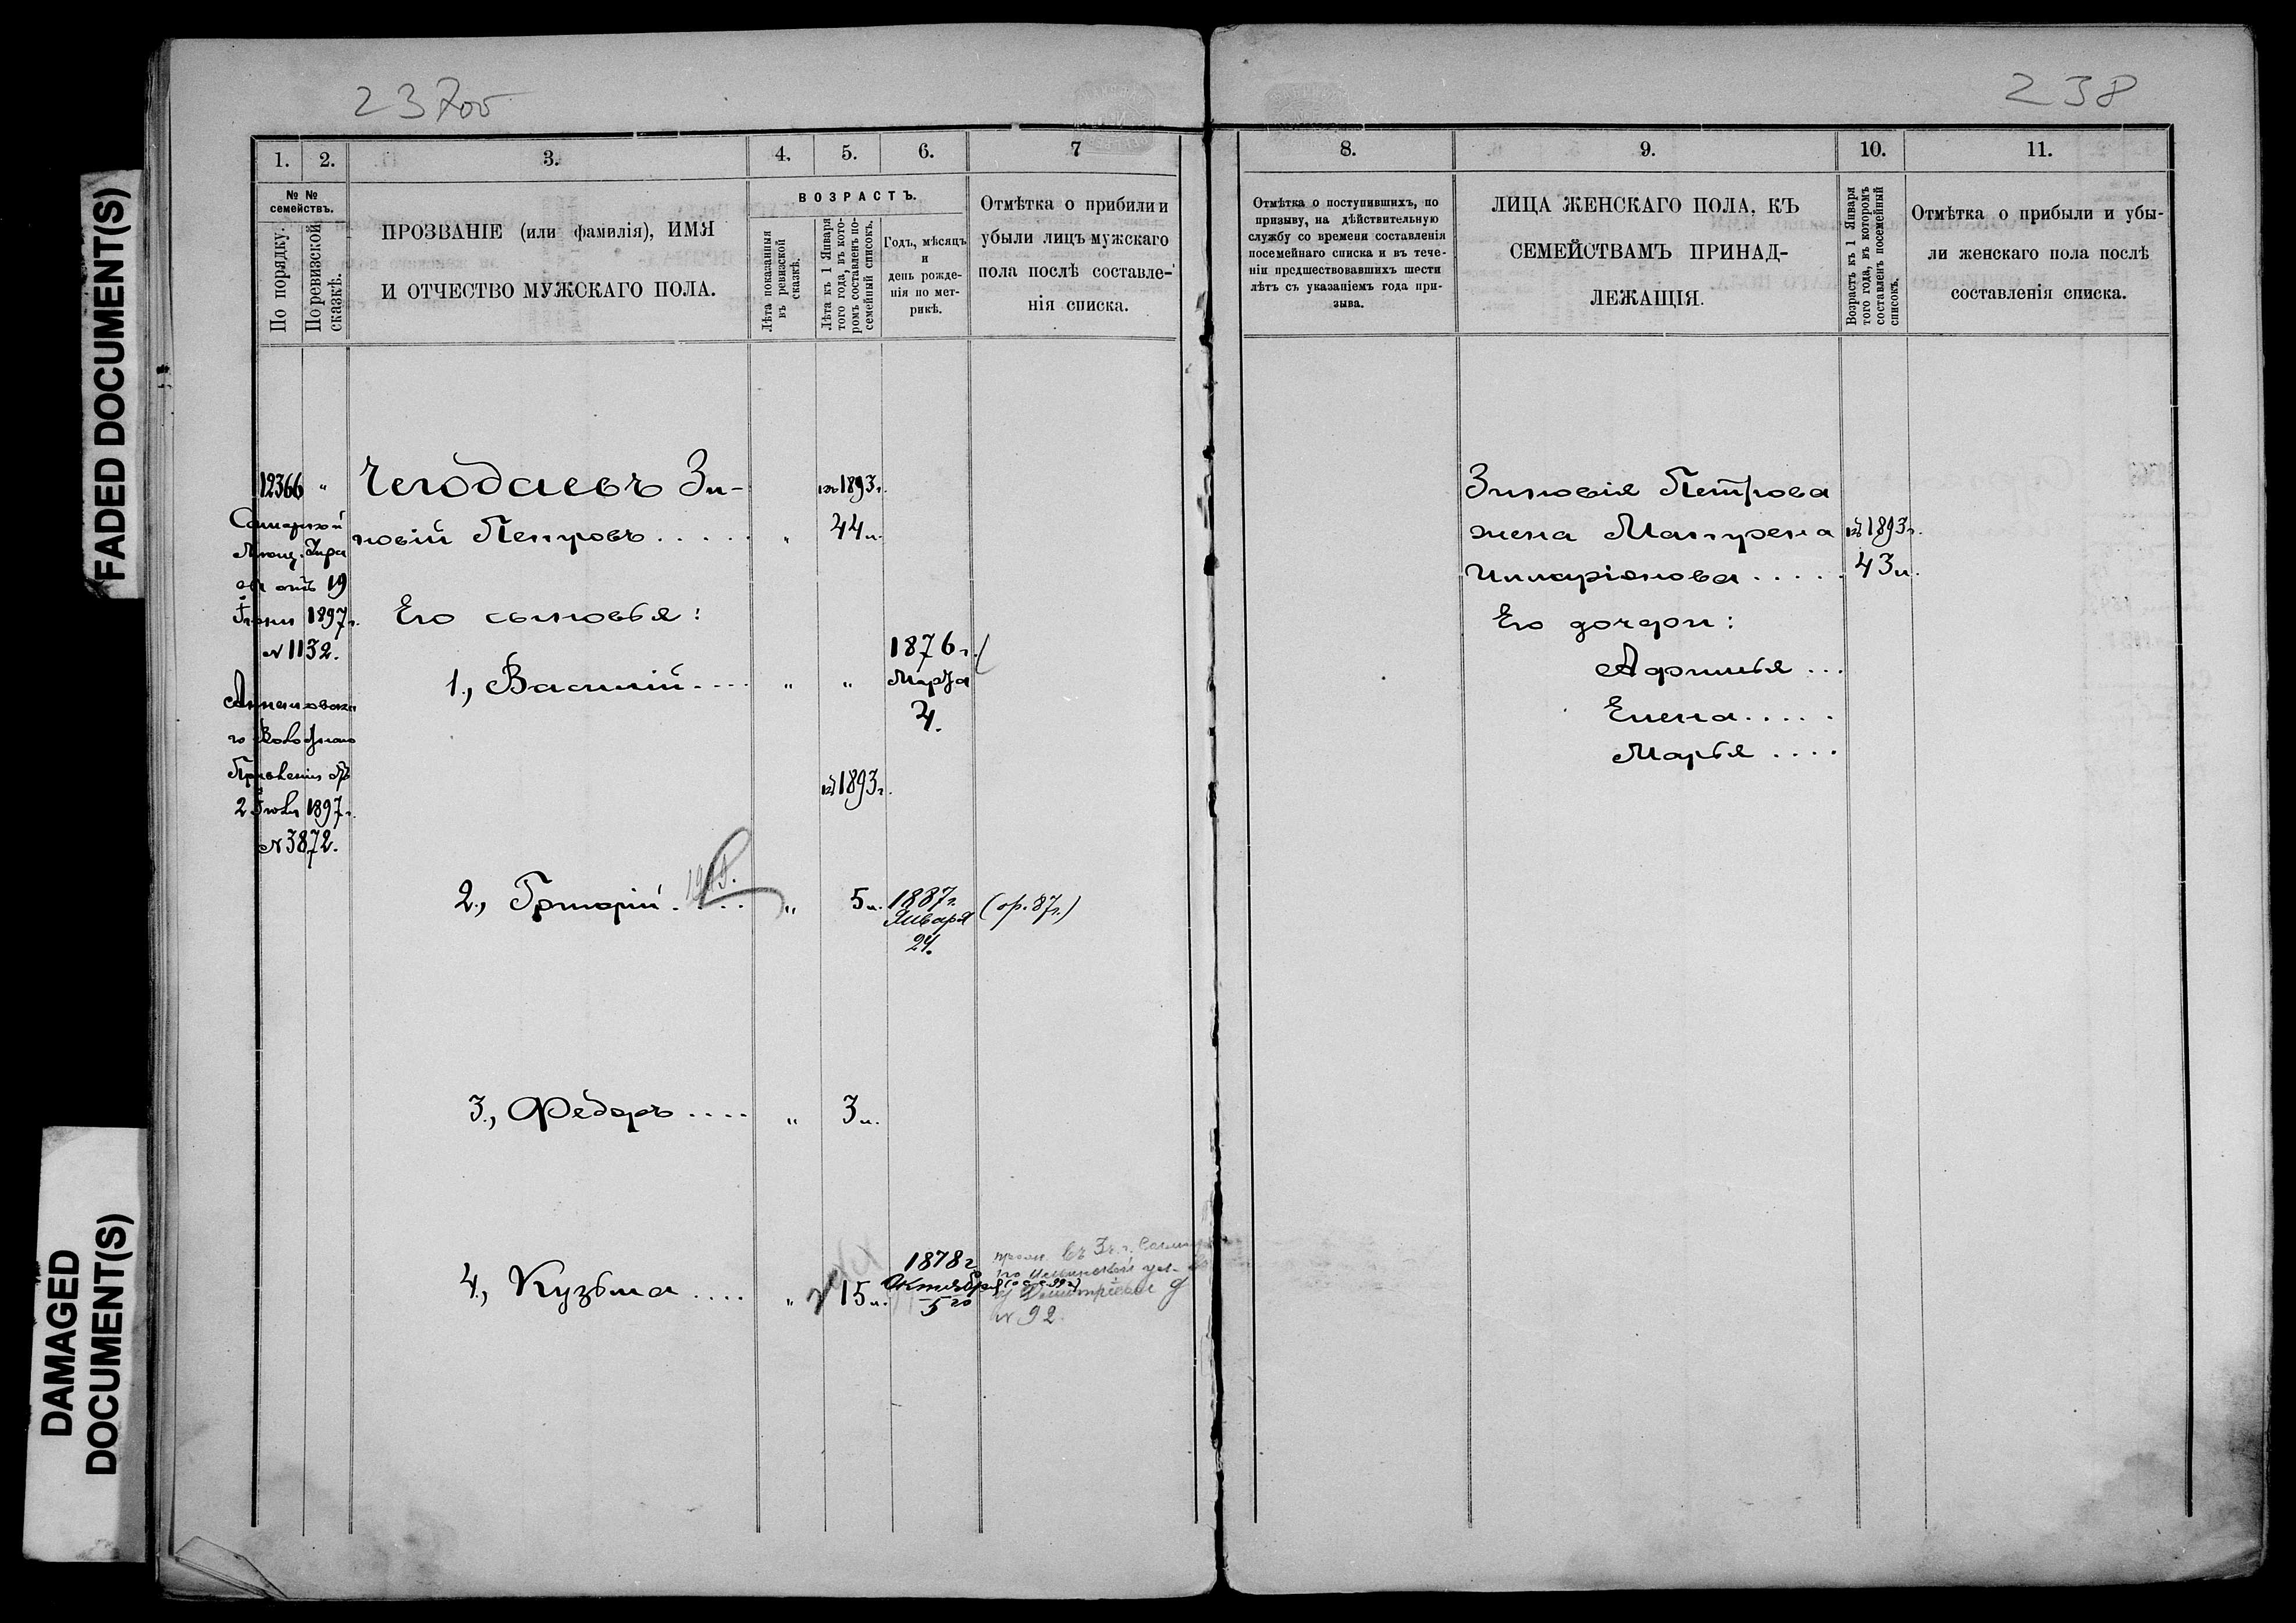 FADED DOCUMENT(S)
DAMAGED
DOCUMENT(S)
237об
1. 2. 3. 4. 5. 6. 7
№ №
семействъ.
По порядку.
По ревизской
сказкѣ.
ПРОЗВАНІЕ (или фамилія), ИМЯ
И ОТЧЕСТВО МУЖСКАГО ПОЛА.
ВОЗРАСТЪ.
Лѣта показанныя
въ ревизской
сказкѣ.
Лѣта къ 1 Января
того года, въ кото-
ромъ составленъ по-
семейный списокъ.
Годъ, мѣсяцъ
и
день рожде-
нія по мет-
рикѣ.
Отмѣтка о прибыли и
убыли лицъ мужскаго
пола послѣ составле-
нія списка.
12366 "
Самарской
отъ 19
Іюня 1897г.
№ 1132.
го Волостного
Правленія
2 Іюля 1897г.
№ 3872.
Чегодаевъ Зи-
новій Петровъ..... "
1893г.
44л.
Его сыновья:
1., Василій.... " "
1876г.
Марта
4.
1893г.
2., Григорій.... " 5л.
1887г.
Января
24.
(ор. 87г.)
3., Федоръ.... " 3л.
4., Кузьма.... " 15л.
1878г
Октября
5го
№ 92
238
8. 9. 10. 11.
Отмѣтка о поступившихъ, по
призыву, на дѣйствительную
службу со времени составленія
посемейнаго списка и въ тече-
ніи предшествовавшихъ шести
лѣтъ съ указаніемъ года при-
зыва.
ЛИЦА ЖЕНСКАГО ПОЛА, КЪ
СЕМЕЙСТВАМЪ ПРИНАД-
ЛЕЖАЩІЯ.
Возрастъ къ 1 Января
того года, въ которомъ
составленъ посемейный
списокъ.
Отмѣтка о прибыли и убы-
ли женскаго пола послѣ
составленія списка.
Зиновія Петрова
жена Матрена
Илларіонова.....
1893г.
43л.
Его дочери:
Афимья...
Елена.....
Марья....